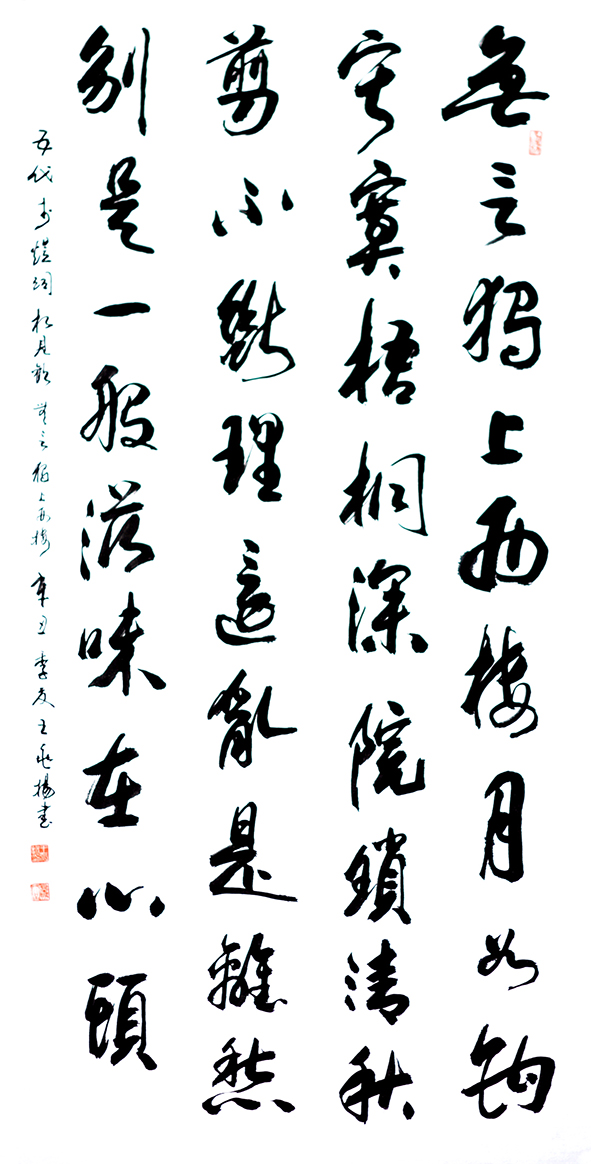 無言獨上西樓月如鈎
寂寞梧桐深院鎖清秋
剪不斷理還亂是離愁
別是一般滋味在心頭
五代李煜詞相見歡無言獨上西樓 辛丑季夏王 楊書